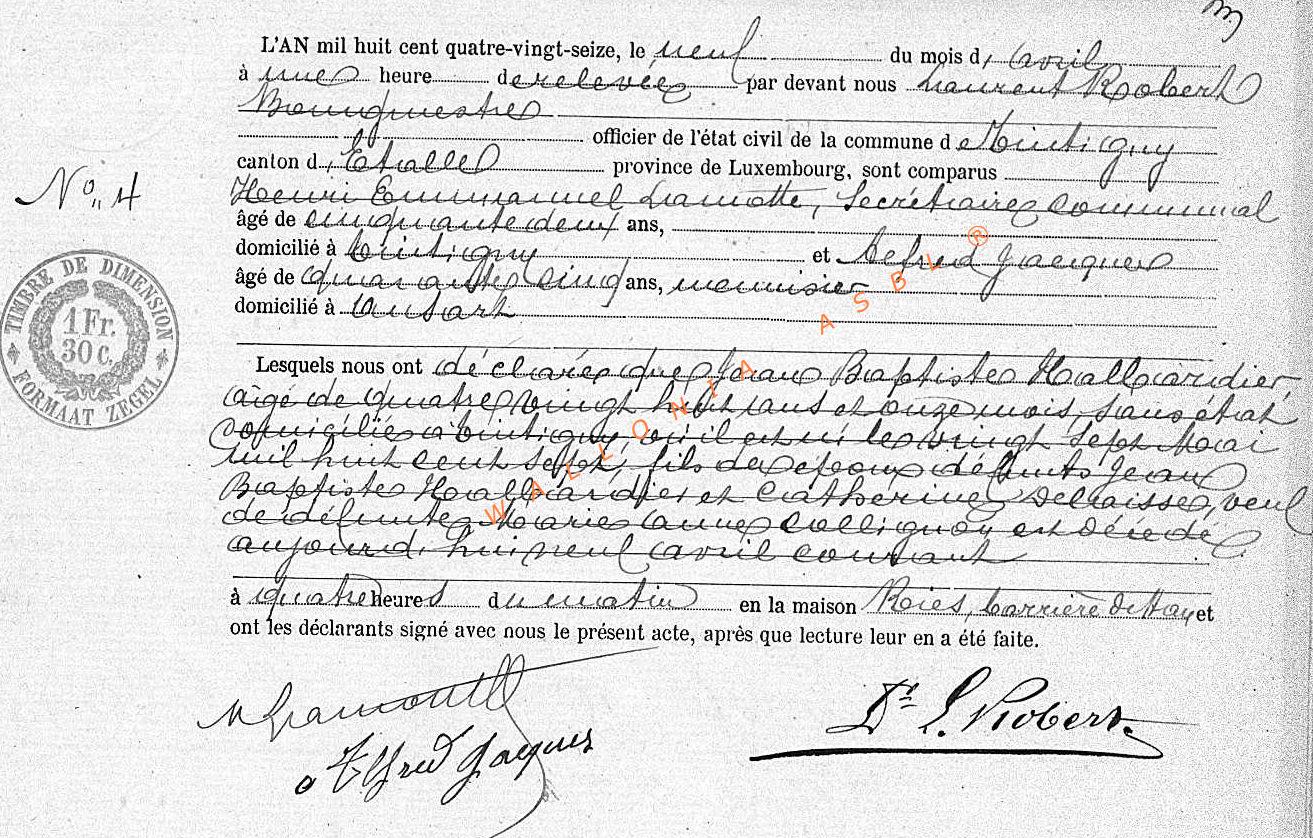 L'AN mil huit cent quatre-vingt-seize, le neuf du mois d'avril
à une heure de relevée par devant nous Laurent Robert
Bourgmestre
officier de l'état civil de la commune de Tintigny
canton d'Etalle province de Luxembourg, sont comparus
N° 4
Henri Emmanuel Lamotte, Secrétaire communal
âgé de cinquante deux ans,
domicilié à Tintigny et Alfred Jacques
âgé de quarante cinq ans, menuisier
domicilié à Ansart
TIMBRE DE DIMENSION
1 Fr.
30 c.
FORMAAT ZEGEL
Lesquels nous ont déclaré que Jean Baptiste Hallardier
âgé de quatre vingt huit ans et onze mois, sans état
domicilié à Tintigny, où il est né le vingt sept Mai
mil huit cent sept, fils des époux défunts Jean
Baptiste Hallardier et Catherine veuf
de défunte Marie Anne Collignon est décédé
aujourd'hui neuf avril courant
à quatre heures du matin en la maison et
ont les déclarants signé avec nous le présent acte, après que lecture leur en a été faite.
Lamotte
Alfred Jacques
Dr L. Robert.
WALLONIA ASBL ®